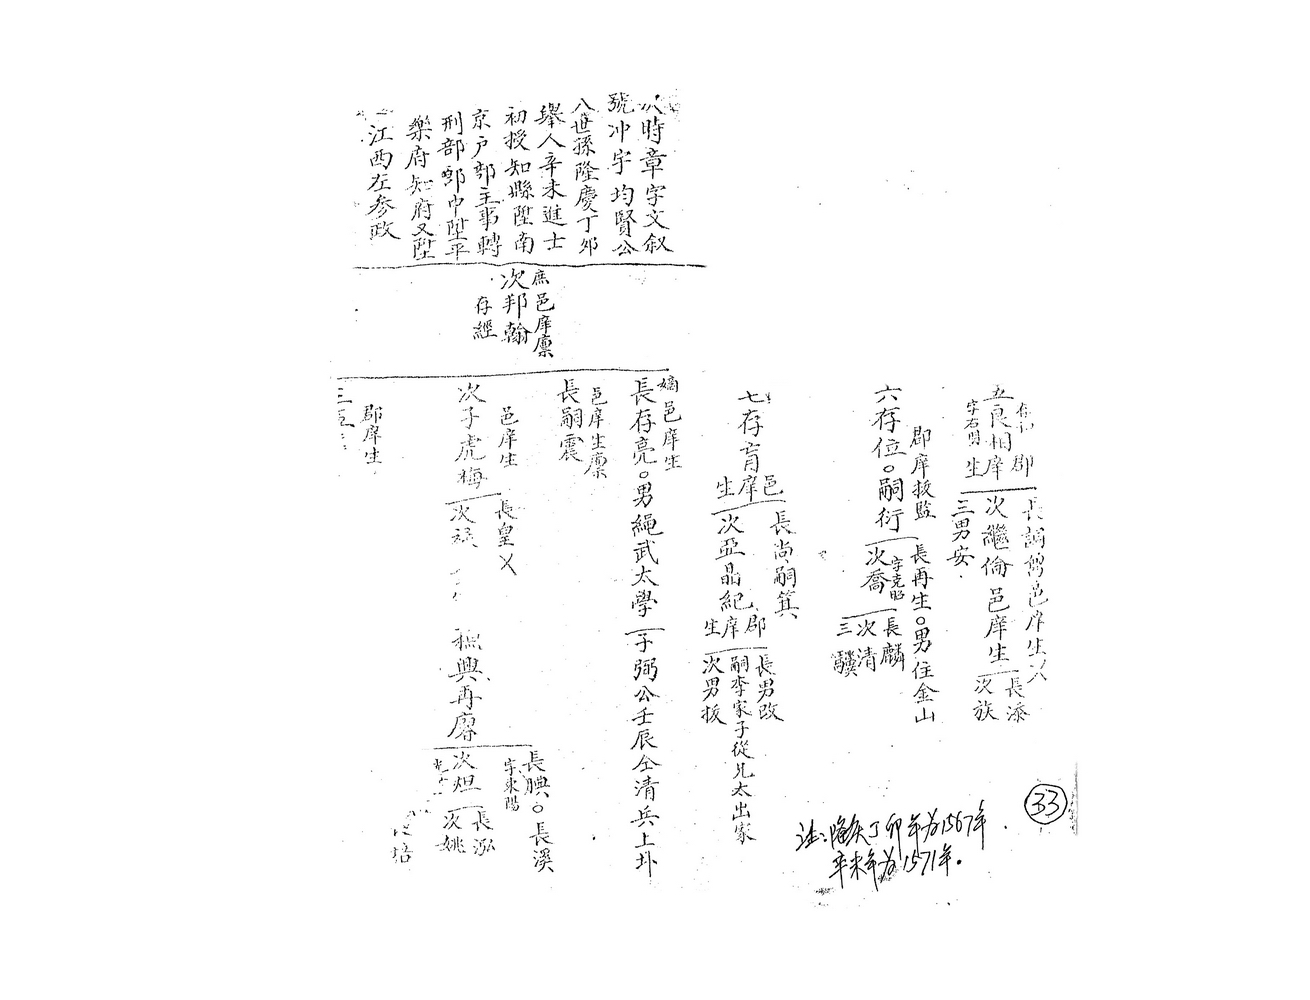 次時章字文叙
號冲宇均賢公
八世孫隆慶丁夘
舉人辛未進士
初授知縣陞南
京户部主事轉
刑部郎中陞平
樂府知府又陞
江西左参政
庶邑庠廪
次邦翰
存經
五良相
郡庠生
字右明
次繼倫邑庠生
三男安
長添
次族
六存位。嗣衍
郡庠拔監
長再生。男住金山
次喬
字克昭
長麟
次清
三騏
七存肓
邑庠生
長尚嗣箕
次亞晶紀
郡庠生
長男改
嗣李家子從兄太出家
次男拔
嫡邑庠生
長存亮。男繩武太學
子弼公壬辰仝清兵上圤
邑庠生廪
長嗣震
邑庠生
次子虎梅
長皇乂
次
興再
長腆。長溪
字東陽
次烜
長泓
次姚
郡庠生
三
培
注:隆庆丁卯年为1567年
辛未年为1571年。
33